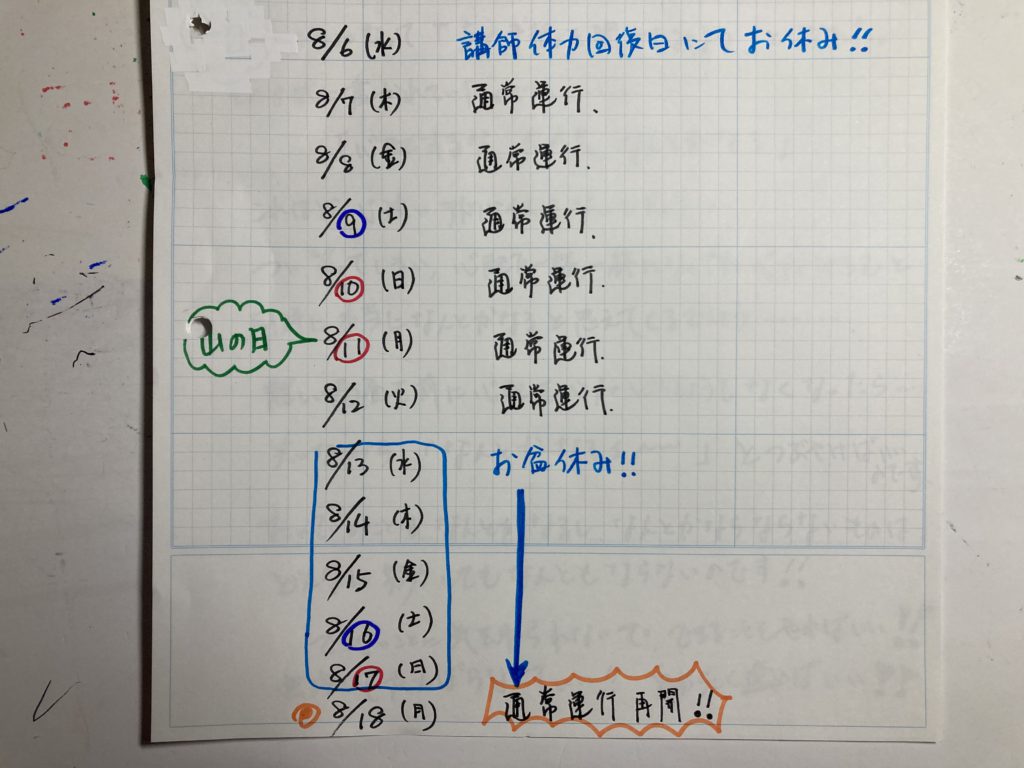 8/6(水) 講師体力回復日にてお休み!!
8/7(木) 通常運行.
8/8(金) 通常運行.
8/9(土) 通常運行.
8/10(日) 通常運行.
山の日 8/11(月) 通常運行.
8/12(火) 通常運行.
8/13(水) お盆休み!!
8/14(木)
8/15(金)
8/16(土)
8/17(日)
8/18(月) 通常運行再開!!